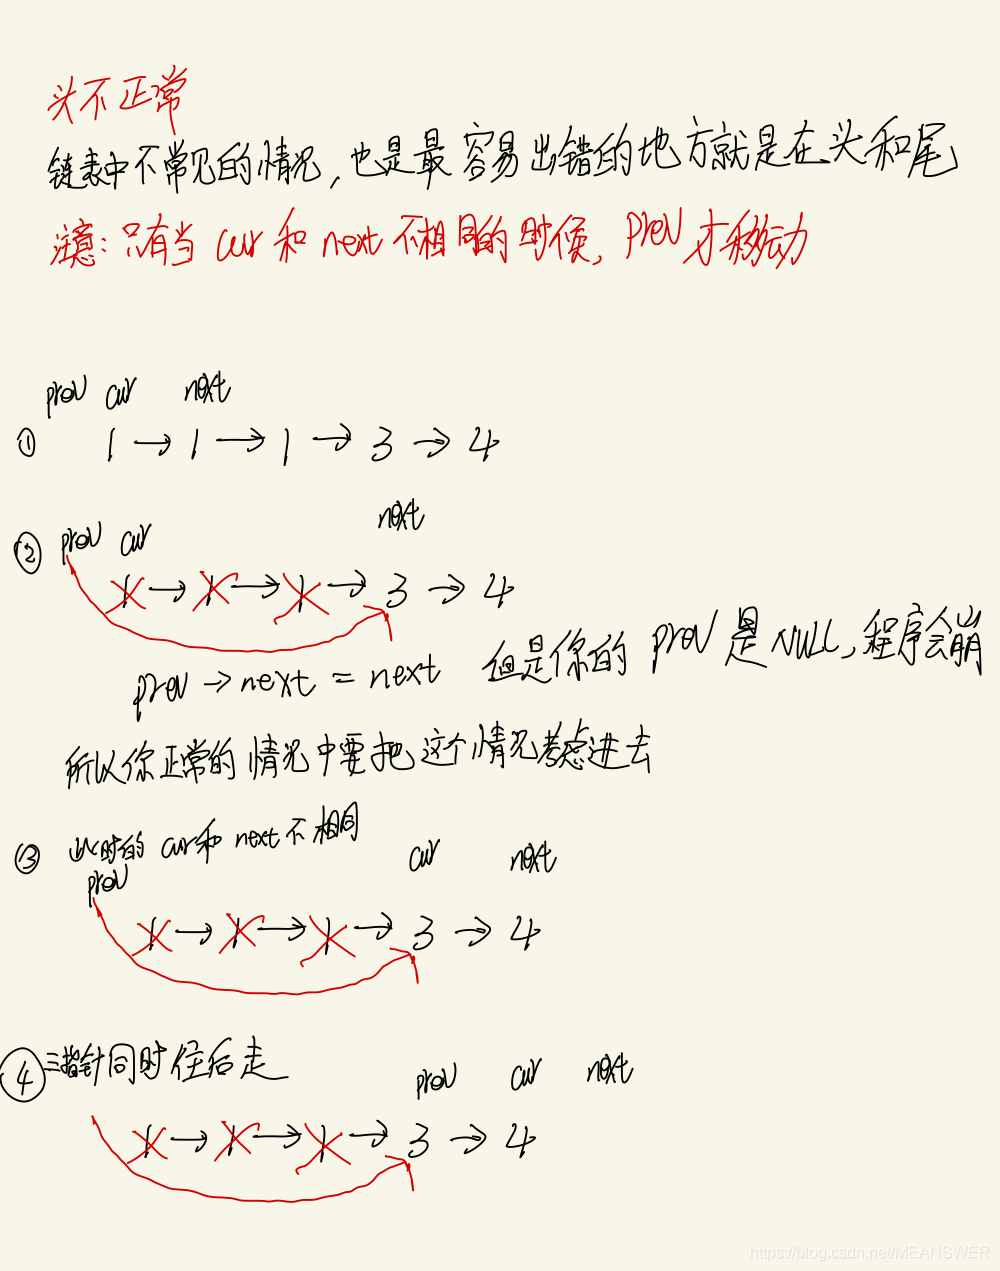 头不正常
链表中不常见的情况，也是最容易出错的地方就是在头和尾
注意：只有当 cur 和 next 不相同的时候，prev 才移动
prev cur next
① 1 → 1 → 1 → 3 → 4
next
② prev cur
1 → 1 → 1 → 3 → 4
prev → next = next 但是你的 prev 是 NULL，程序会崩
所以你正常的情况中要把这个情况考虑进去
③ 此时的 cur 和 next 不相同 cur next
prev
1 → 1 → 1 → 3 → 4
④ 三指针同时往后走 prev cur next
1 → 1 → 1 → 3 → 4
https://blog.csdn.net/MEANSWER